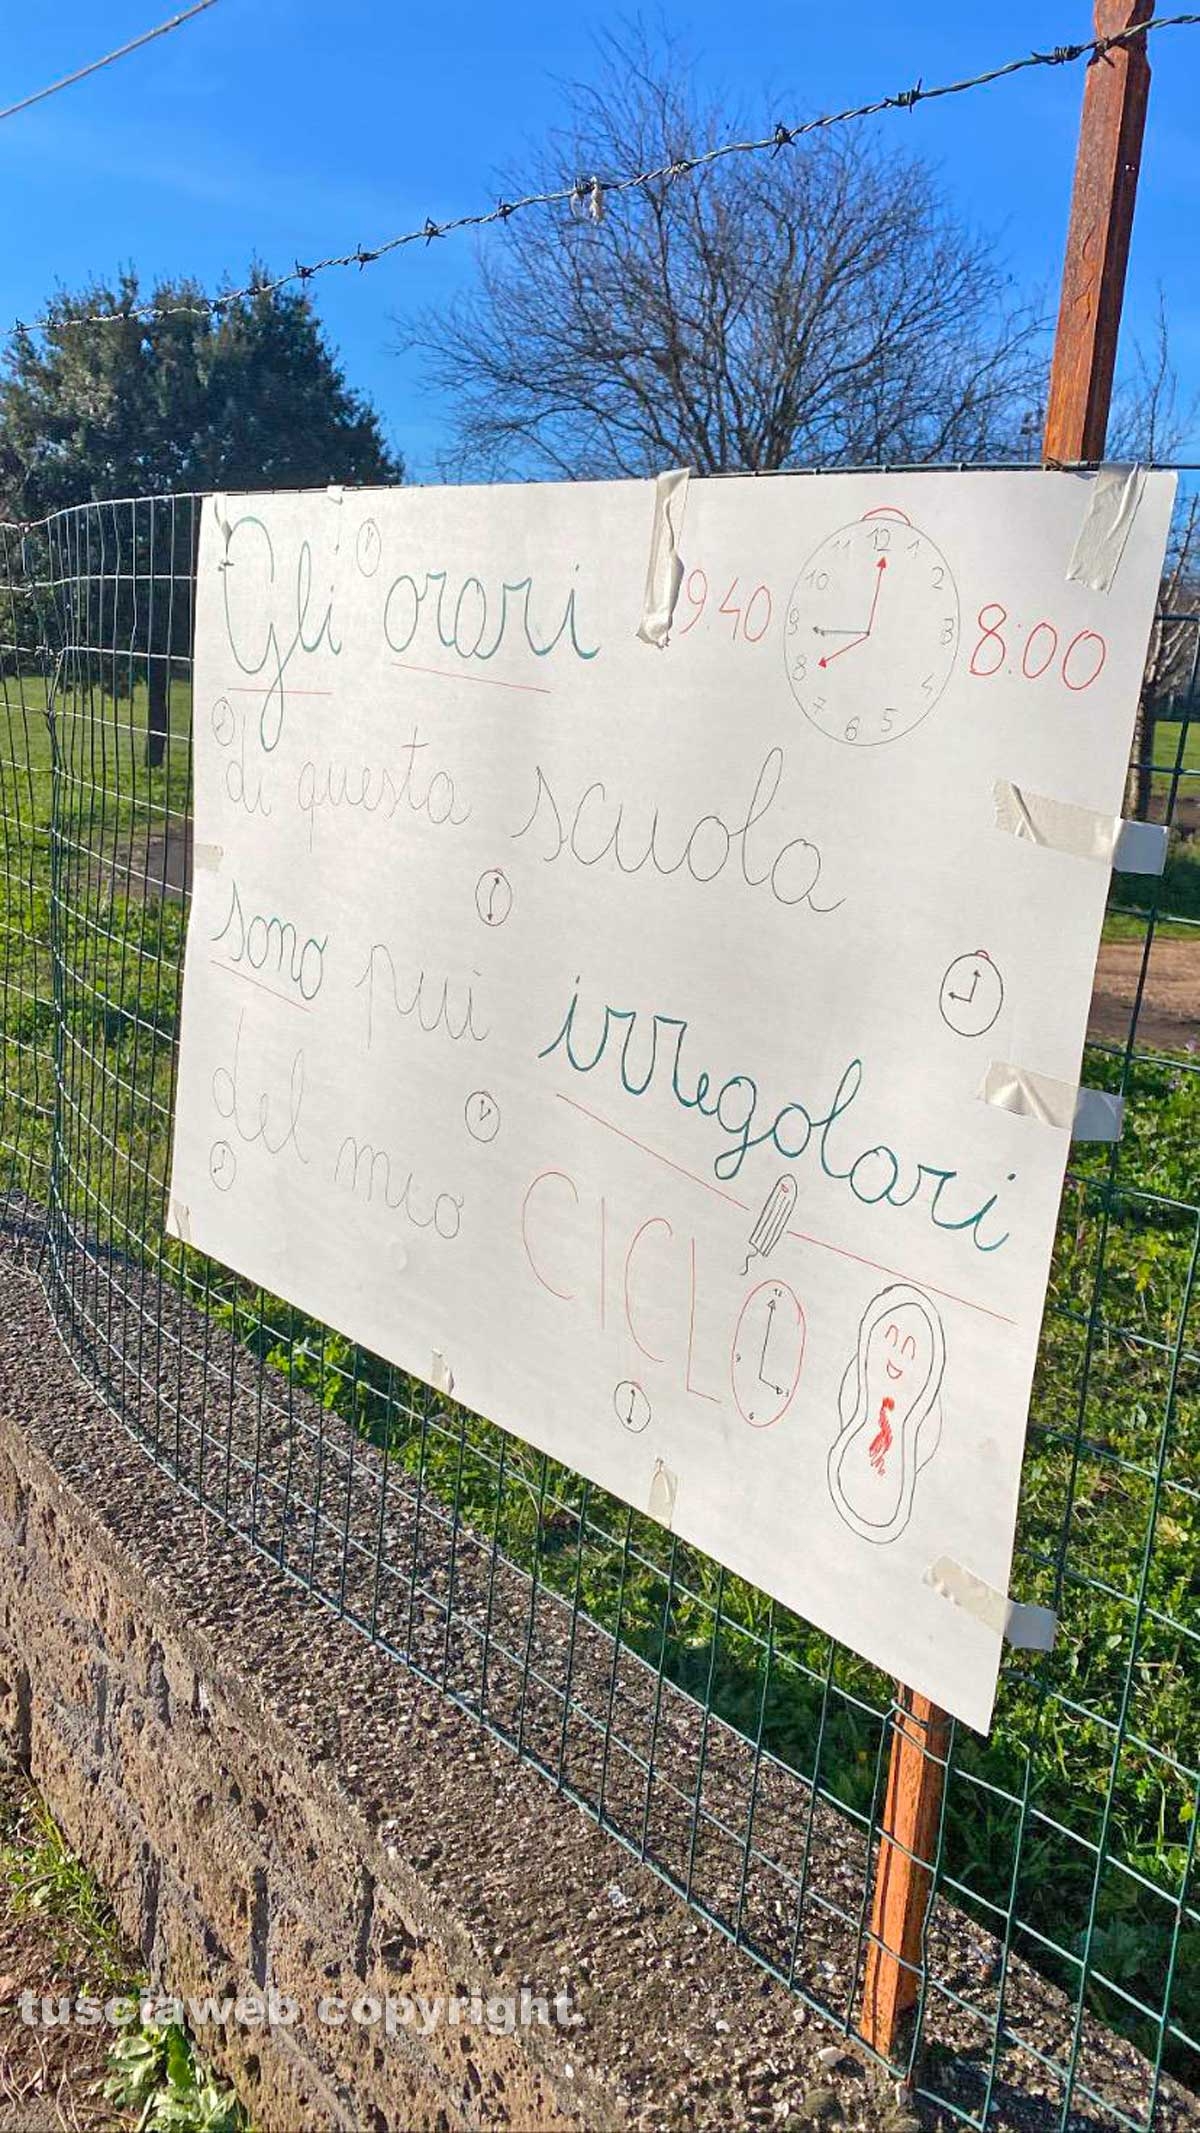 Gli orari 9:40 8:00
11 12 1
10 2
9 3
8 4
7 6 5
di questa scuola
sono più irregolari
del mio CICLO
12
9 3
6
tusciaweb copyright